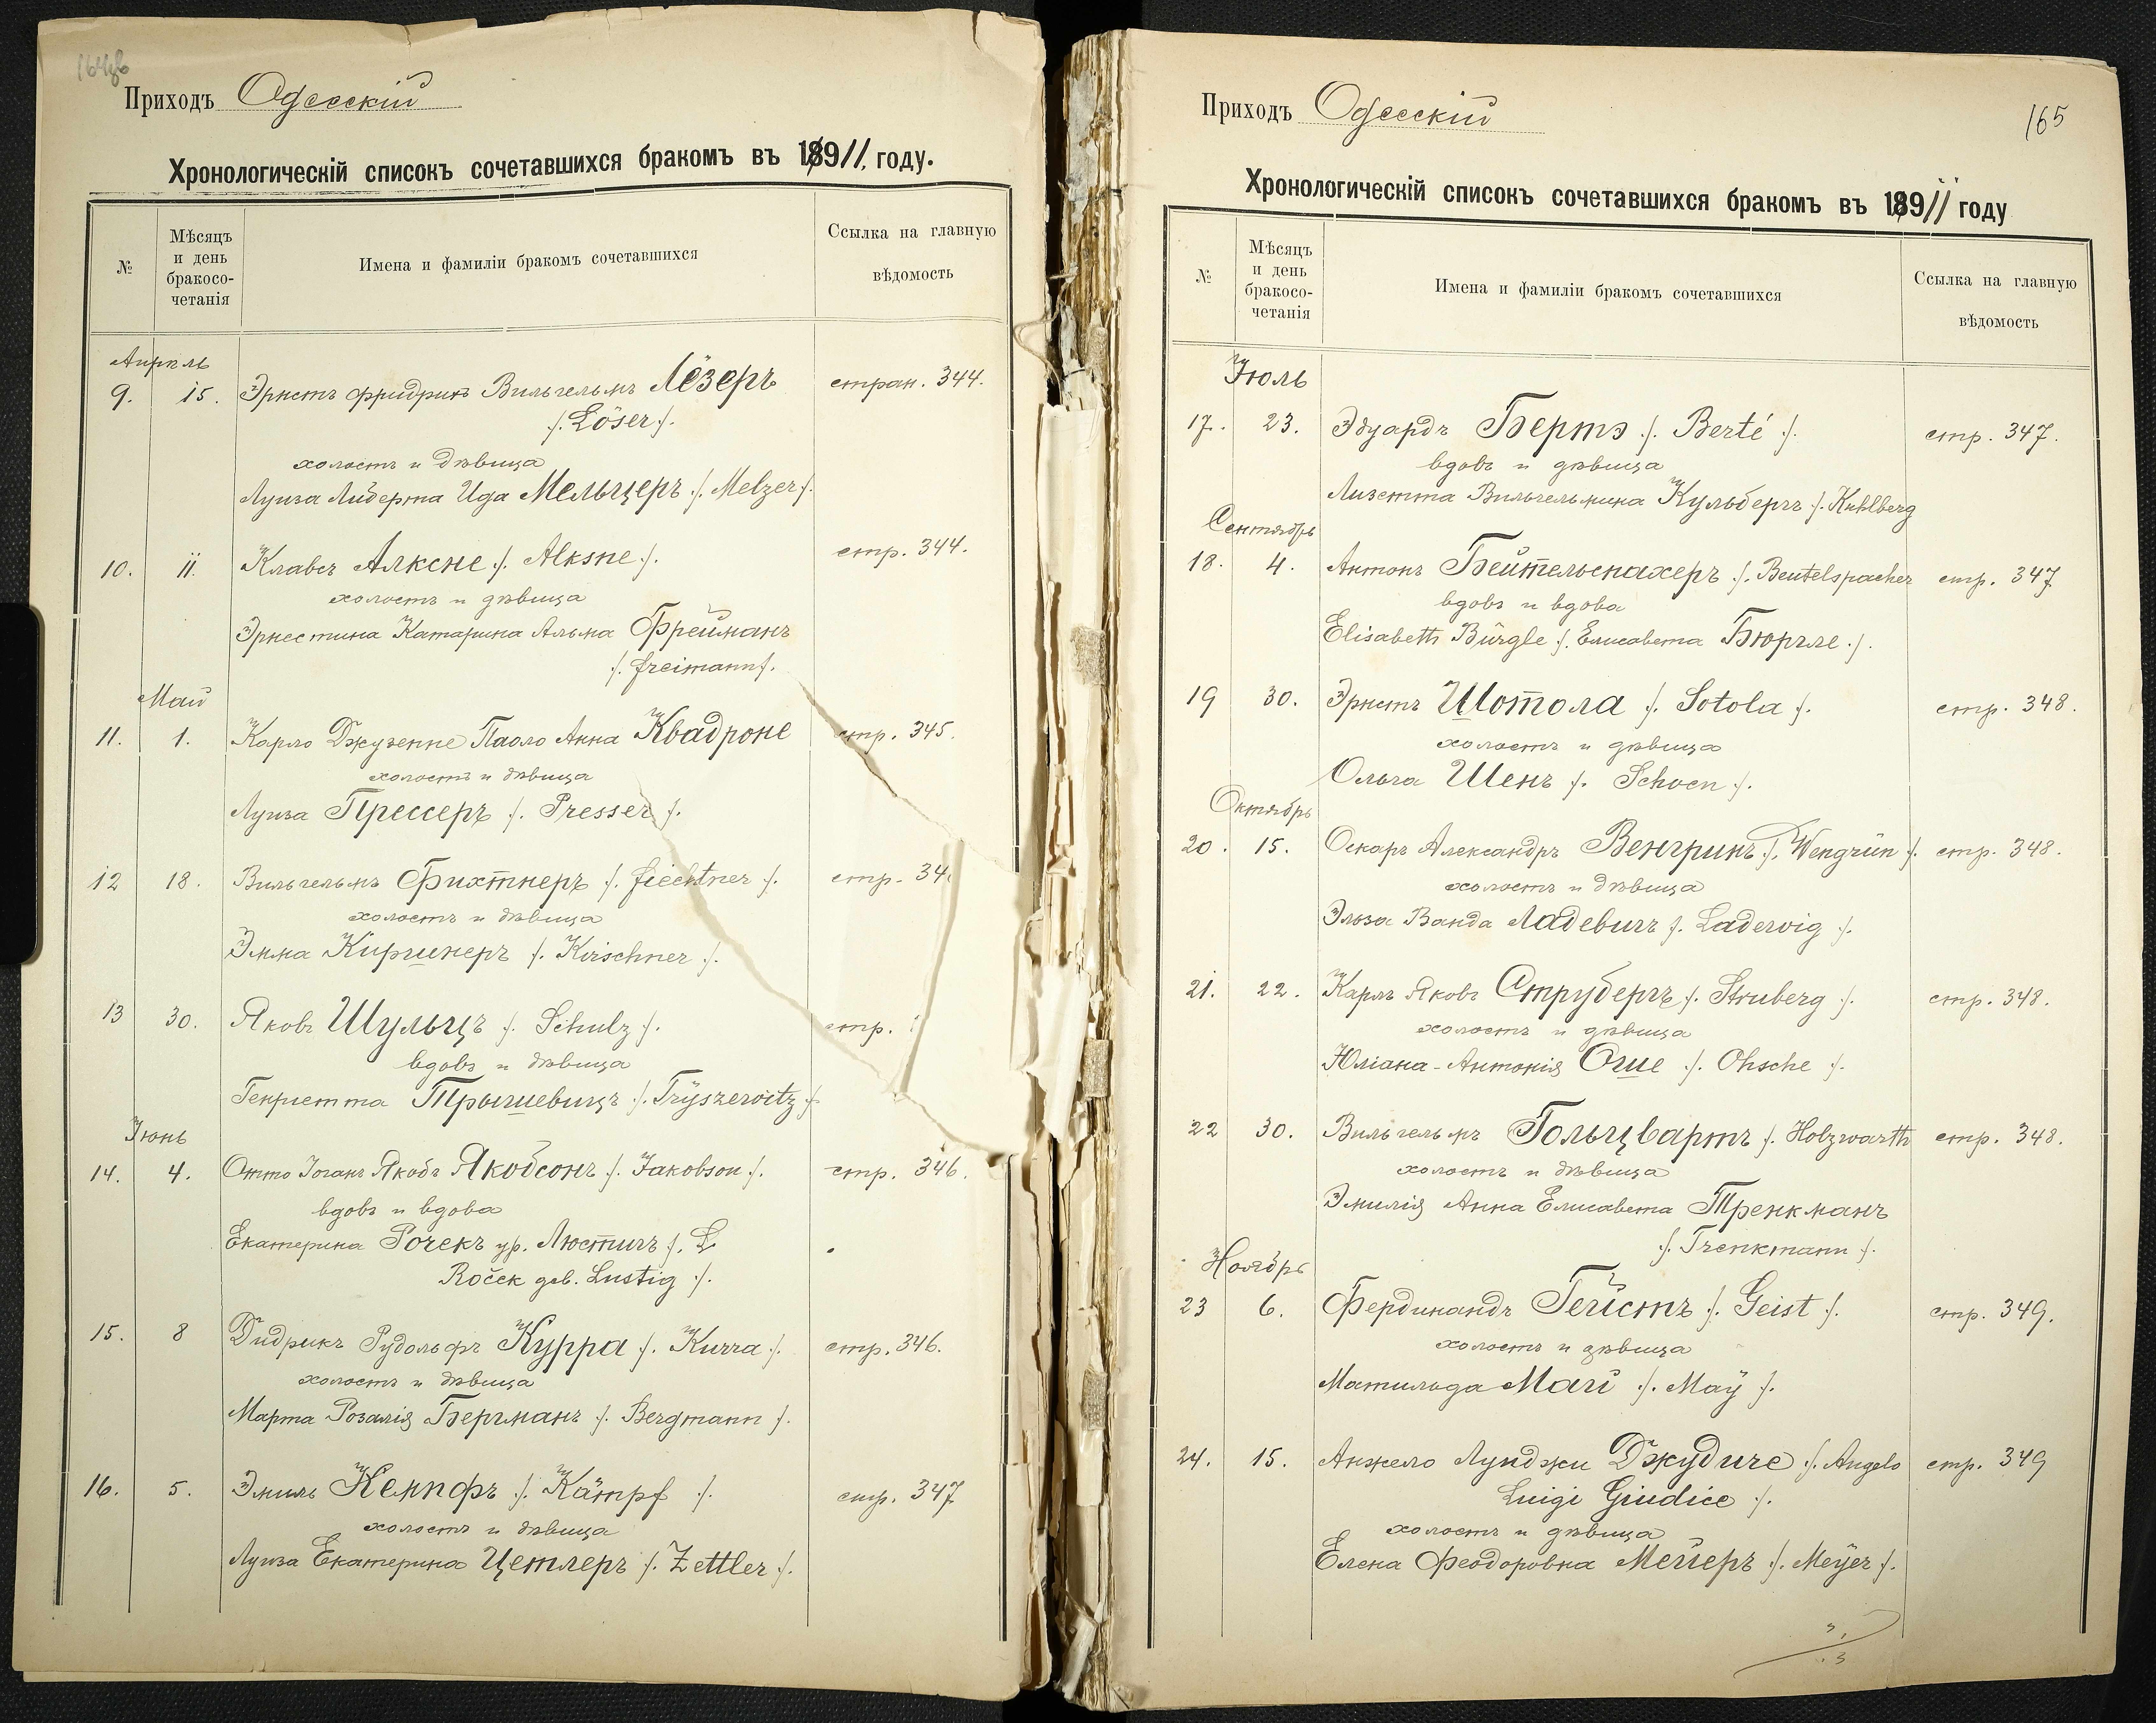 Приходъ Одесскій
Хронологическій списокъ сочетавшихся бракомъ въ 18911, году.
№
Мѣсяцъ
и день
бракосо-
четанія
Имена и фамиліи бракомъ сочетавшихся
Ссылка на главную
вѣдомость
Апрѣль
9. 15. Эрнстъ Фридрихъ Вильгельмъ Лёзеръ стран. 344.
/. Löser /.
холостъ и дѣвица
Луиза Ида Мельцеръ /. Melzer /.
10. 11. Клавсъ Алксне /. Alksne /. стр. 344.
холостъ и дѣвица
Эрнестина Катарина Альма Фрейманъ
/. Freimann /.
Май
11. 1. Карло Джузеппе Паоло Анна Квадроне стр. 345.
холостъ и дѣвица
Луиза Прессеръ /. Presser /.
12 18. Вильгельмъ Фихтнеръ /. Fiechtner /. стр. 34
холостъ и дѣвица
Эмма Киршнеръ /. Kirschner /.
13 30. Яковъ Шульцъ /. Schulz /. стр.
вдовъ и дѣвица
Генріетта Трышевицъ /. Trÿszewitz /.
Іюнь
14. 4. Отто Іоганъ Якобъ Якобсонъ /. Jakobson /. стр. 346.
вдовъ и вдова
Екатерина Рочекъ ур. Люстигъ /.
Roček geb. Lustig /.
15. 8 Дидрикъ Рудольфъ Курра /. Kurra /. стр. 346.
холостъ и дѣвица
Марта Розалія Бергманъ /. Bergmann /.
16. 5. Эмиль Кемпфъ /. Kämpf /. стр. 347
холостъ и дѣвица
Луиза Екатерина Цетлеръ /. Zettler /.
Приходъ Одесскій
165
Хронологическій списокъ сочетавшихся бракомъ въ 18911 году
№
Мѣсяцъ
и день
бракосо-
четанія
Имена и фамиліи бракомъ сочетавшихся
Ссылка на главную
вѣдомость
Іюль
17. 23. Эдуардъ Бертэ /. Berté /. стр. 347.
вдовъ и дѣвица
Лизетта Вильгельмина Кульбергъ /. Kuhlberg
Сентябрь
18. 4. Антонъ Бейтельспахеръ /. Beutelspacher стр. 347
вдовъ и вдова
Elisabeth Bürgle /. Елисавета Бюргле /.
19 30. Эрнстъ Шотола /. Sotola /. стр. 348.
холостъ и дѣвица
Ольга Шенъ /. Schoen /.
Октябрь
20. 15. Оскаръ Александръ Венгринъ /. Wengrün /. стр. 348.
холостъ и дѣвица
Эльза Ванда Ладевигъ /. Ladewig /.
21. 22. Карлъ Яковъ Струбергъ /. Struberg /. стр. 348.
холостъ и дѣвица
Юліана-Антонія Оше /. Ohsche /.
22 30. Вильгельмъ Гольцвартъ /. Holzwarth стр. 348.
холостъ и дѣвица
Эмилія Анна Елисавета Тренкманъ
/. Trenkmann /.
Ноябрь
23 6. Фердинандъ Гейстъ /. Geist /. стр. 349.
холостъ и дѣвица
Матильда Май /. Maÿ /.
24. 15. Анжело Луиджи Джудиче /. Angelo стр. 349
Luigi Giudice /.
холостъ и дѣвица
Елена Феодоровна Мейеръ /. Meÿer /.